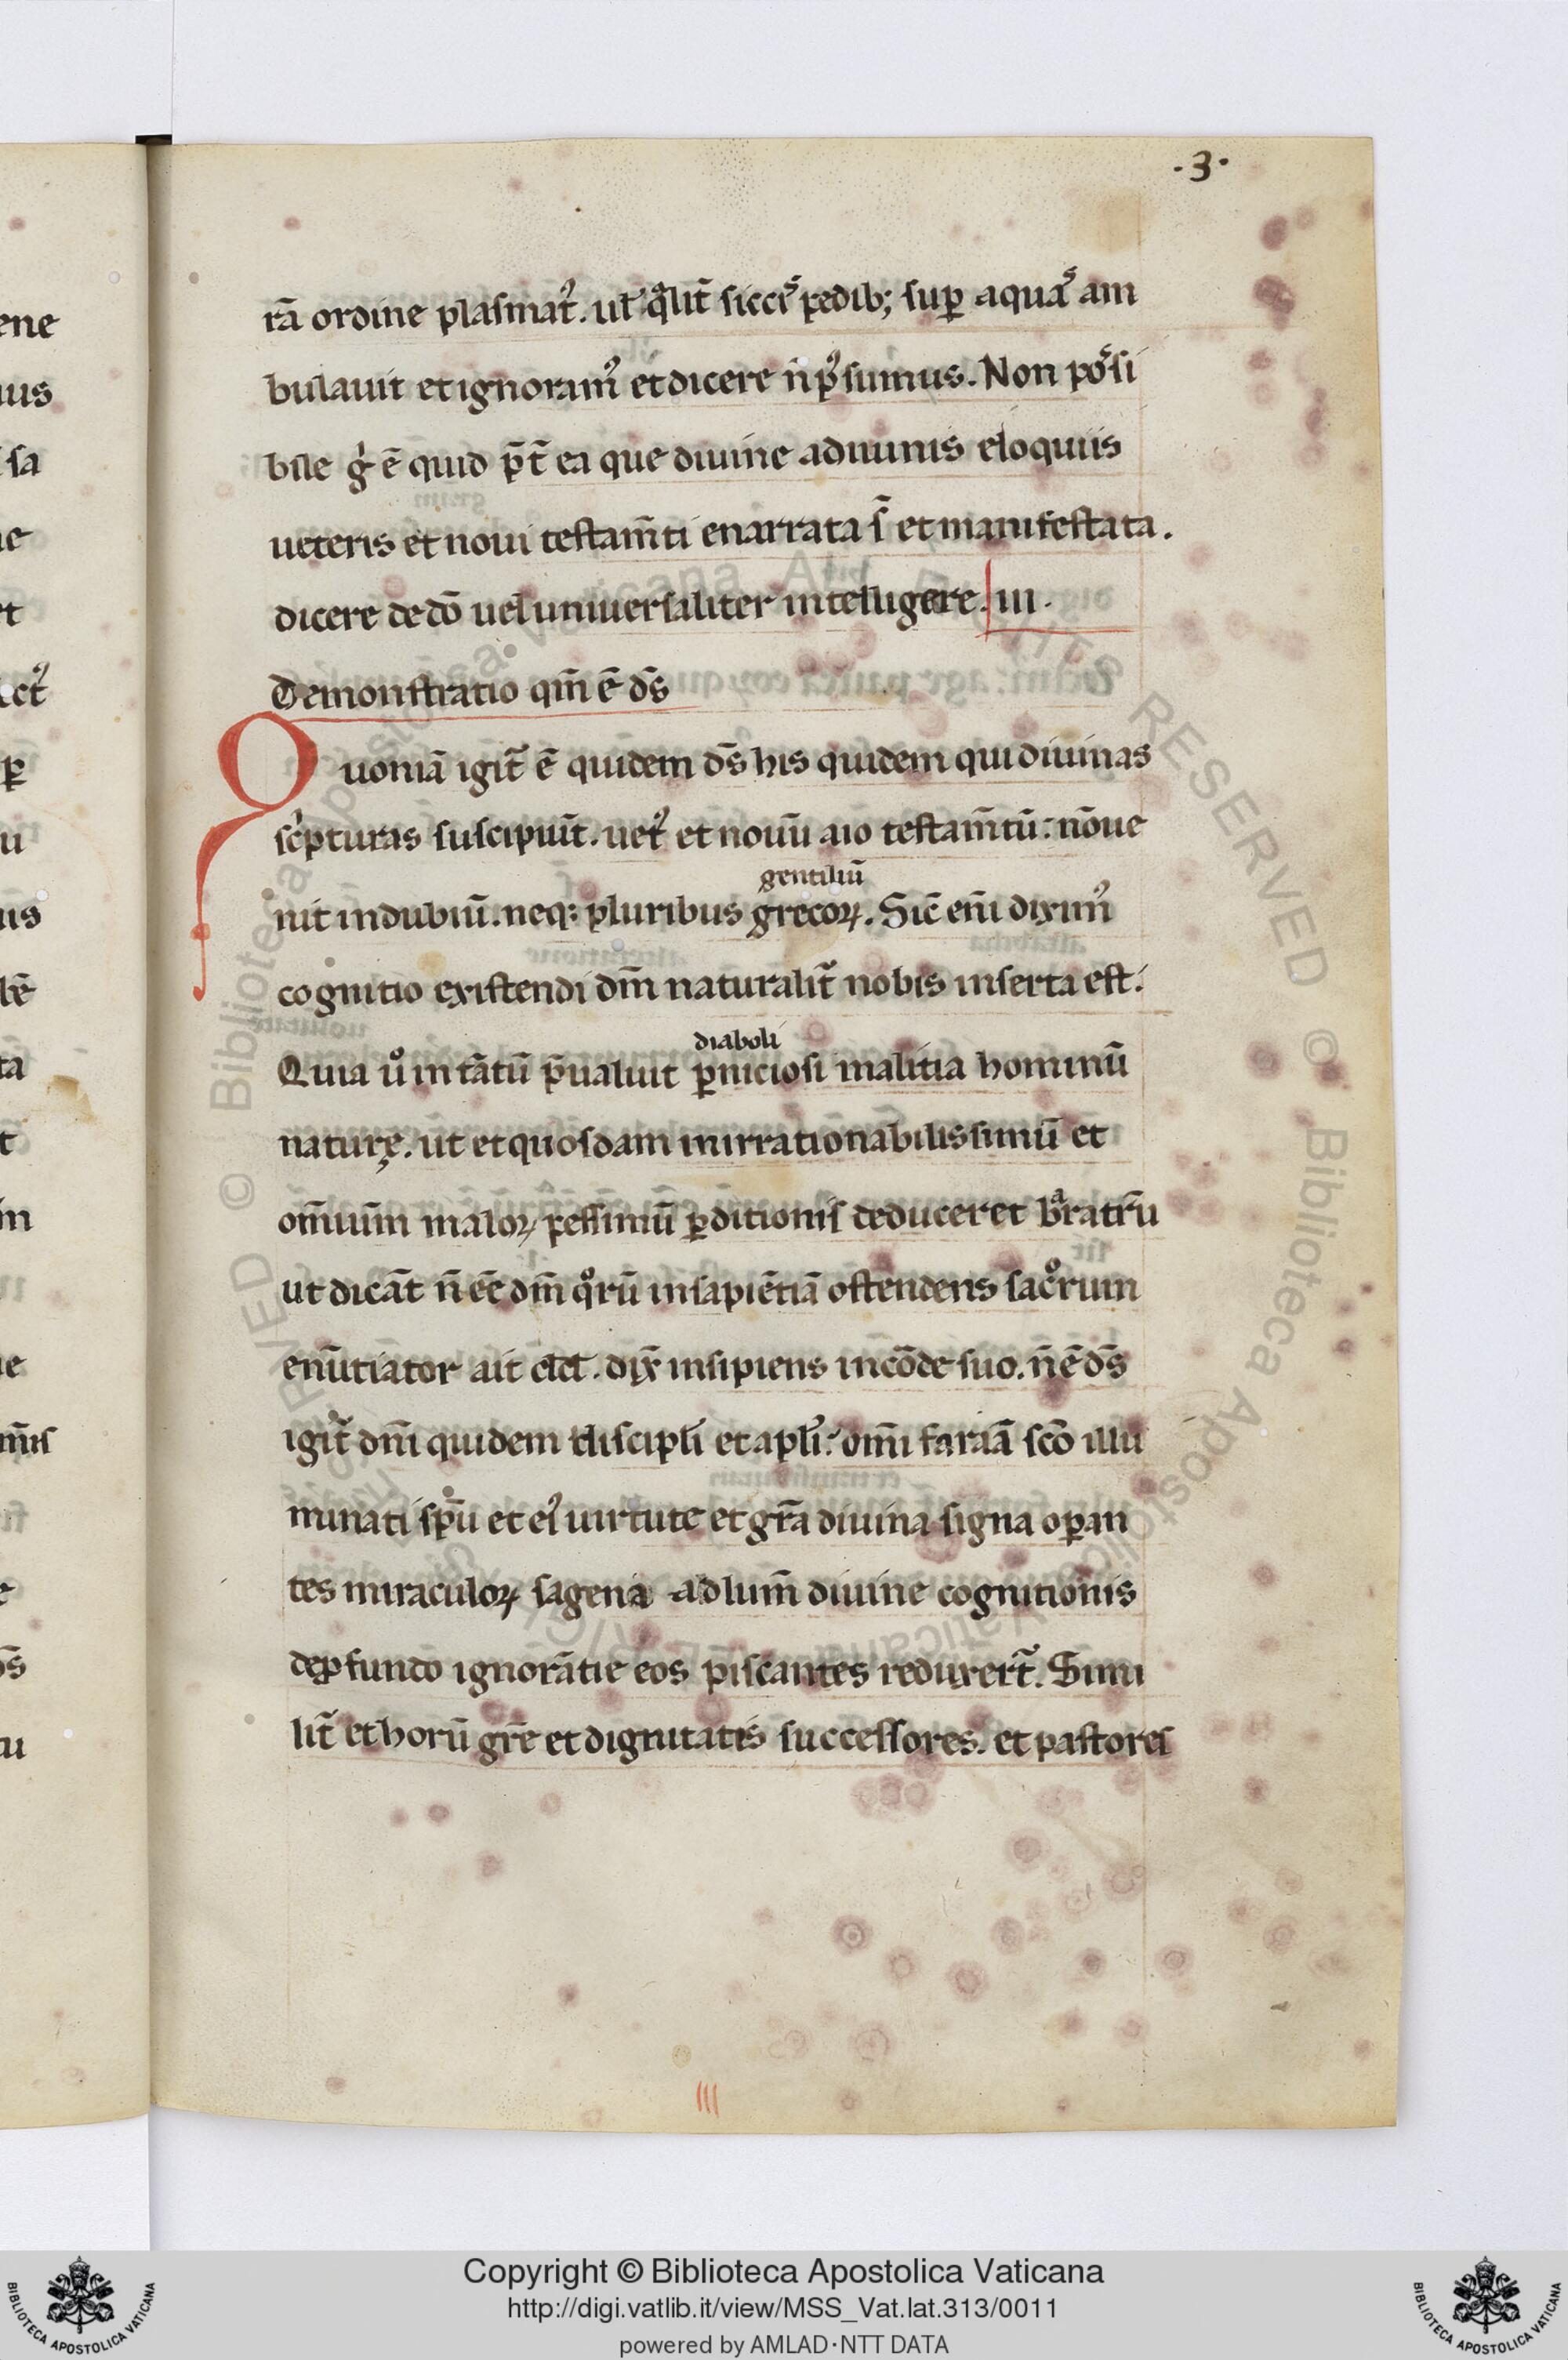 ·3·
rā ordine plasmat᷒. ul' qͣlit̄ sicciˢ pedib; sup̱ aquaˢ am
bulauit et ignoram᷒ et dicere n̄ p᷒sumus. Non poˢsi
bile gͥ ē quid p̄t̄ ea que diuine a diuinis eloquiis
ueteris et noui testam̄ti enarrata s̄ et manifestata.
dicere de dō uel uniuersaliter intelligere. III.
Demonstratio qm̄ ē ds̄
Quoniā igit̄ ē quidem ds̄ his quidem qui diuinas
scͥpturas suscipiūt. uet᷒ et nouū aio testam̄tū: nō ue
gentiliū
nit in dubiū. neq: pluribus grecoꝝ. Sic̄ eni̅ dixim᷒
cognitio existendi dm̄ naturalit̄ nobis inserta est.
diaboli
Quia uͦ in tātū p̄ualuit ꝑniciosi malitia hominū
naturę. ut et quosdam in irrationabilissimū et
om̄ium maloꝝ pessimū ꝑditionis deduceret bͣratrū
ut dicāt n̄ eē dm̄ qͦrū insapiētiā ostendens sacͦrum
enūtiator ait dd. dix̄ insipiens in cōde suo. n̄ ē ds̄
igit̄ dn̄i quidem discipli et apli. om̄i fariā scō illu
minati sp̄u et ei᷒ uirtute et gr̄a diuina signa oꝑan
tes miraculoꝝ sagena ad lum̄ diuine cognitionis
de ꝓfundo ignorātie eos piscantes reduxert̄. Simi
lit̄ et horū gr̄e et dignitatis successores. et pastores
III
ene
ius
sa
ct᷒
ꝑ
u
us
ta
m
tu
Copyright © Biblioteca Apostolica Vaticana
http://digi.vatlib.it/view/MSS_Vat.lat.313/0011
powered by AMLAD·NTT DATA
BIBLIOTECA APOSTOLICA VATICANA
BIBLIOTECA APOSTOLICA VATICANA